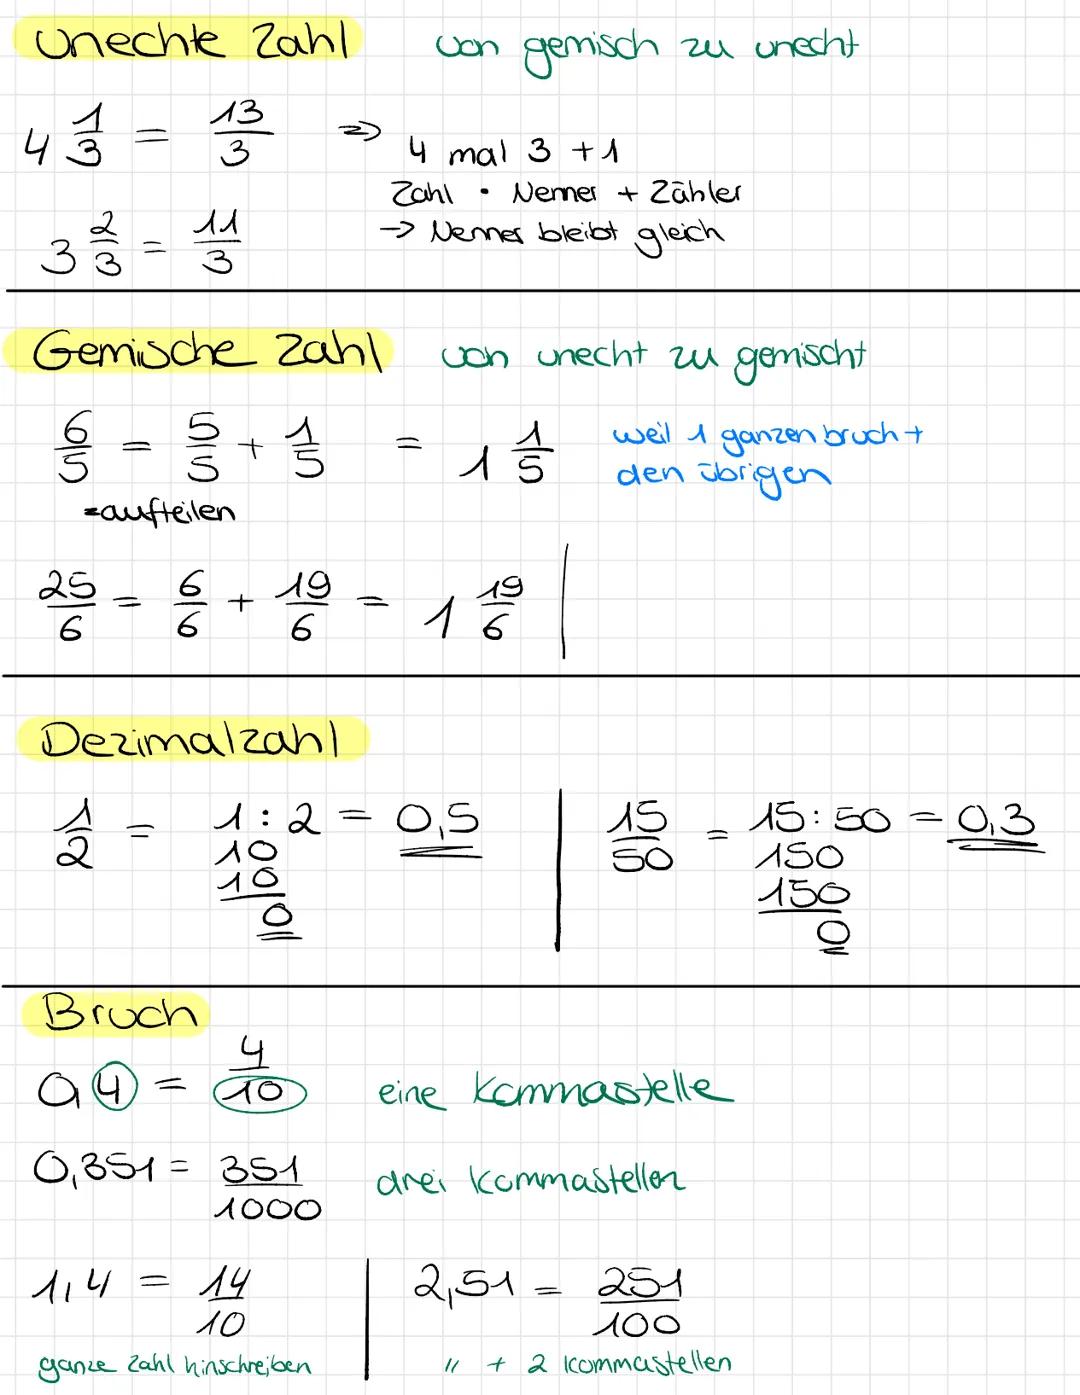 Unechte Zahl von gemisch zu unecht
4 1/3 = 13/3 => 4 mal 3 + 1
Zahl · Nenner + Zähler
3 2/3 = 11/3 → Nenner bleibt gleich
Gemische Zahl von unecht zu gemischt
6/5 = 5/5 + 1/5 = 1 1/5 weil 1 ganzen bruch +
den übrigen
=aufteilen
25/6 = 6/6 + 19/6 = 1 19/6
Dezimalzahl
1/2 = 1 : 2 = 0,5
10
10
0
15/50 = 15 : 50 = 0,3
150
150
0
Bruch
0,4 = 4/10 eine Kommastelle
0,351 = 351/1000 drei Kommastellen
1,4 = 14/10
ganze Zahl hinschreiben
2,51 = 251/100
" + 2 Kommastellen